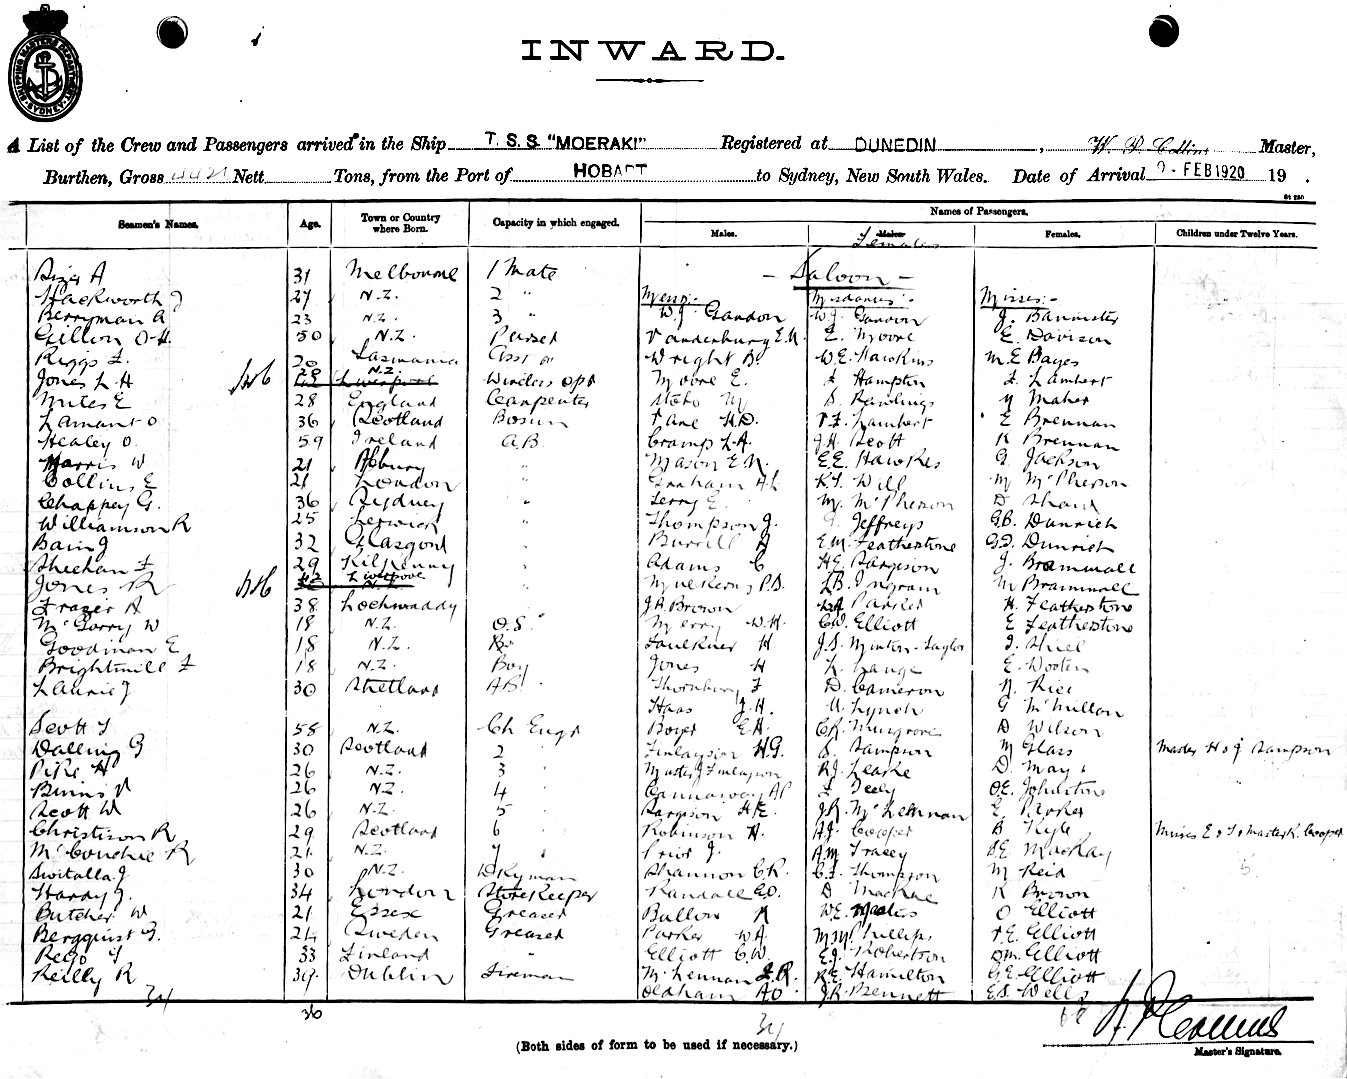 SHIPPING MASTER'S DEPARTMENT SYDNEY
INWARD.
A List of the Crew and Passengers arrived in the Ship T.S.S. "MOERAKI" Registered at DUNEDIN, W. P. Collins Master,
Burthen, Gross 4421 Nett Tons, from the Port of HOBART to Sydney, New South Wales. Date of Arrival - FEB 1920 19 .
Seamen's Names. Age. Town or Country where Born. Capacity in which engaged. Names of Passengers.
Males. Males Females Females. Children under Twelve Years.
A 31 Melbourne 1 Mate - Saloon -
Hackworth J 27 N.Z. 2 " Messrs:- Mesdames:- Misses:-
Berryman A 23 N.Z. 3 " W.J. Gandon W.J. Gandon J. Bannister
Gillion O.H. 50 N.Z. Purser Vandenburg E.M. E. Moore E. Davison
Riggs F. 20 Tasmania Asst " Wright B. W.E. Hawkins M.E Bayes
Jones L H 28 N.Z. Liverpool Wireless Opr Moore E. F Hampton F. Lambert
E 28 England Carpenter M S. Rawlings M Maher
Lamant O 36 Scotland Bosun Pane H.D. F. Lambert E Brennan
Healey O. 59 Ireland A.B. Cramp L.A. J.H. Scott K Brennan
Harris W 21 " Mason E.N. E.E. Hawkes G. Jackson
Collins E 21 London " Graham A.L. Will M McPherson
Chappey G. 36 Sydney " Terry E. M. McPherson D Shand
Williamson R 25 Lerwick " Thompson J. Jeffreys G.B. Dunrich
Bain J 32 Glasgow " Burrell E.M. Featherstone G.F. Dunrich
Sheehan F 29 Kilkenny " Adams C H.E. Sargison J. Brammall
Jones R 42 Liverpool N.Z. " P.D. L.B. Ingram M Brammall
Frazer A 38 Lochmaddy J.A. Brown Parker H. Featherstone
McGorry W 18 N.Z. O.S. Merry W.H. C.W. Elliott E Featherstone
Goodman E 18 N.Z. Faulkner H J.S. Minton-Taylor J. Shiel
Brightmill F 18 N.Z. Boy Jones H K. Lange E. Wooten
Laurie J 30 Shetland A.B. Thornbury F D. Cameron N. Rice
Haas J.H. U. Lynch G McMillan
Scott T 58 N.Z. Ch Engr Boyer E.A. C.R. Musgrove D Wilson
Dalling G 30 Scotland 2 Finlayson H.G. S. Sampson M Glass Master H & J Sampson
Pike H 26 N.Z. 3 " Master J Finlayson R.J. Leake D. May
Binns 26 N.Z. 4 Cannaway A.P. F Deely O.E. Johnstone
Scott W 26 N.Z. 5 " Sargison H.E. J.R. McLennan E. Parker
Christison R 29 Scotland 6 Robinson H. A.J. Cooper B Misses E & J & Master R. Cooper
McConchie R 21 N.Z. 7 " Prior J. A.M. Tracey MacKay 5
Switalla J 30 N.Z. Dkyman Shannon C.R. C.F. Thompson M Reid
Hardy J. 34 London Storekeeper Randall G.O. D MacRae K Brown
Butcher W 21 Essex Greaser Bullow W.E. O Elliott
Bergquist G. 24 Sweden Greaser Parker W.A. M.M. Phillips Elliott
Rego 33 Finland " Elliott C.W. E.J. Robertson D.M. Elliott
Reilly R 34 Dublin Fireman McLennan J.R. R.E. Hamilton G.E. Elliott
34 Oldham A.O. J.R. Bennett E.S. Wells
36 34 68 W. P. Collins
(Both sides of form to be used if necessary.)
Master's Signature.